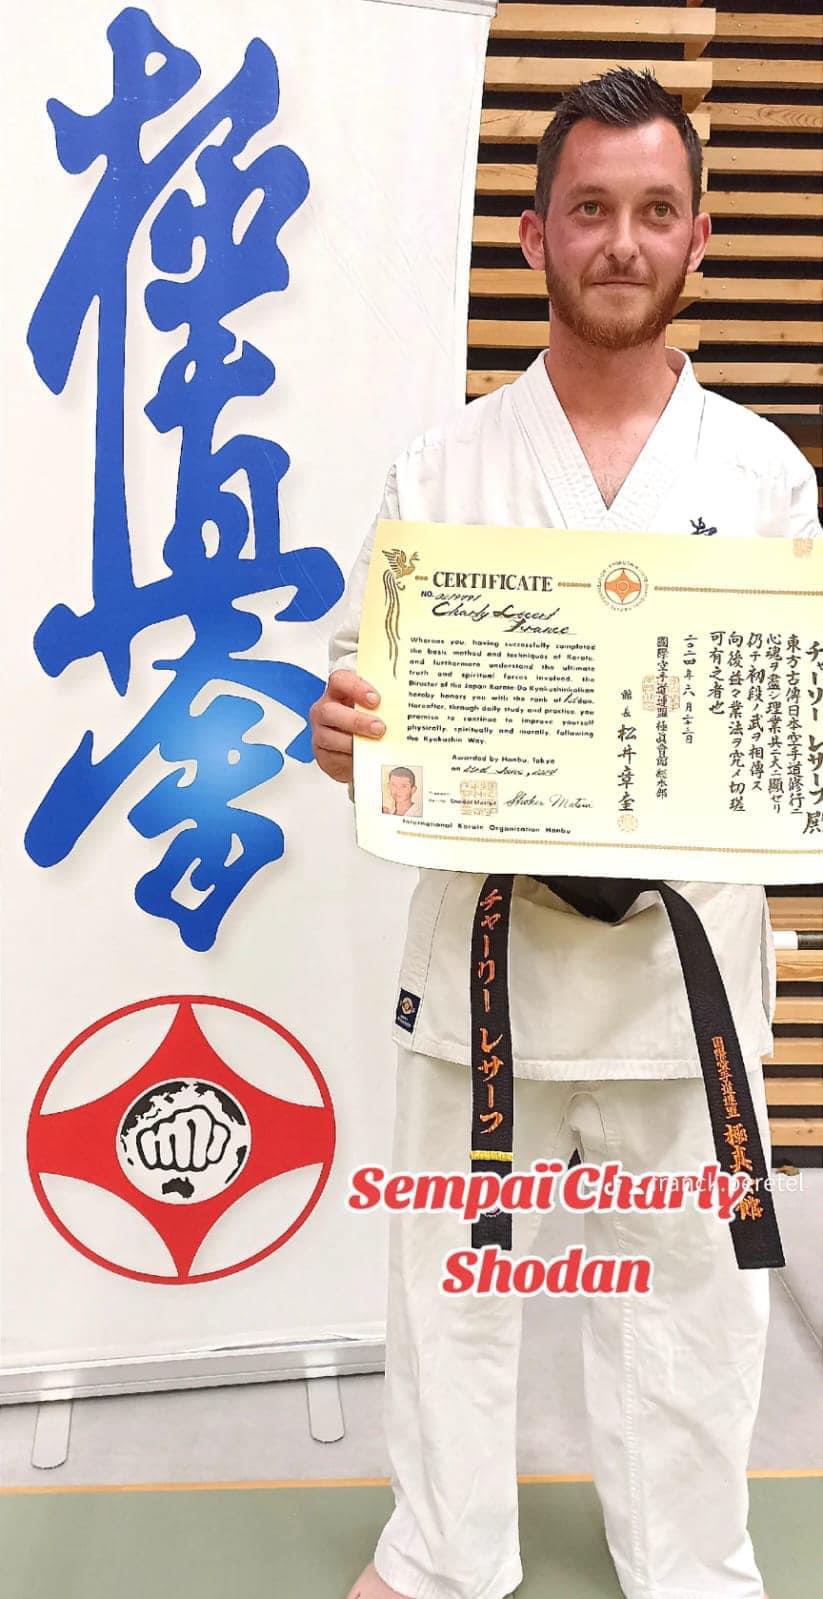 極真會
CERTIFICATE
NO.
Charly
France
Whereas you, having successfully completed
the basic method and techniques of Karate,
and furthermore understand the ultimate
truth and spiritual forces involved, the
Director of the Japan Karate-Do Kyokushinkaikan
hereby honors you with the rank of 1st dan.
Hereafter, through daily study and practice, you
promise to continue to improve yourself
physically, spiritually and morally, following
the Kyokushin Way.
Awarded by Honbu, Tokyo
on 23rd June, 2024
Shokei Matsui
International Karate Organization Honbu
チャーリー レサーフ 殿
東方古傳日本空手道修行ニ
心魂ヲ盡シ理業共ニ大ニ顯ゼリ
仍テ初段ノ武ヲ相傳ス
向後益々業法ヲ究メ切瑳
可有之者也
二〇二四年六月二十三日
國際空手道連盟極真會館総本部
館長 松井章奎
チャーリー レサーフ
国際空手道連盟 極真会館
Sempaï Charly
Shodan
franck.peretel